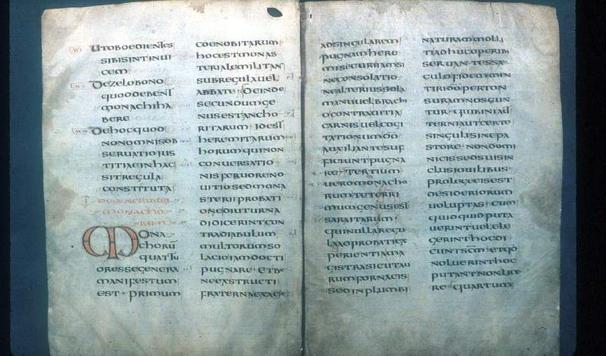 UTOBOEDIENTES
SIBISINTINUI
CEM
DEZELOBONO
QUODDEBENT
MONACHIHA
BERE
DEHOCQUOD
NONOMNISOB
SERUATIOIUS
TITIAEINHAC
SITREGULA
CONSTITUTA
DEGENERIBUS
MONACHO
RUM
MONA
CHORŪ
QUATT
ORESSEGENERA
MANIFESTUM
EST·PRIMUM
COENOBITARUM
HOCESTMONAS
TERIALEMILITANS
SUBREGULAUEL
ABBATE DEINDE
SECUNDUMGE
NUSESTANCHO
RITARUM IDEST
HEREMITARUM
HORUMQUINON
CONUERSATIO
NISFERUORENO
UITIOSEDMONA
STERIIPROBATI
ONEDIUTURNA
DIDICERINTCON
TRADIABULUM
MULTORUMSO
LACIOIAMDOCTI
PUGNARE·ETBE
NEEXSTRUCTI
FRATERNAEXACIE
ADSINGULAREM
PUGNAMHERE
MISECURIIAMSI
NECONSOLATIO
NEALTERIUSSOLA
MANUUELBRACHI
OCONTRAUITIA
CARNISUELCOGI
TATIONUMDO
AUXILIANTESUF
FICIUNTPUGNA
RE·TERTIUM
UEROMONACHO
RUMTETERRI
MUMGENUSEST
SARAITARUM
QUINULLAREGU
LAADPROBATIEX
PERIENTIAMA
GISTRASICUTAU
RUMFORNACIS
SEDINPLUMBI
NATURAMMOLLI
TIADHUCOPERIB
SERUANTESSAE
CULOFIDEMMEN
TIRI
SURAMNOSCUN
TURQUIBINIAUT
TERNIAUTCERTE
SINGULISINEPA
STORENONDOMI
NICISSEDSUISIN
CLUSIOUILIBUS
PROLEGEEISEST
DESIDERIORUM
UOLUPTASCUM
QUICQUIDPUTA
UERINTUELELE
GERINTHOCDI
CUNTSCMETQD
NOLUERINTHOC
PUTANTNONLICE
RE·QUARTUM